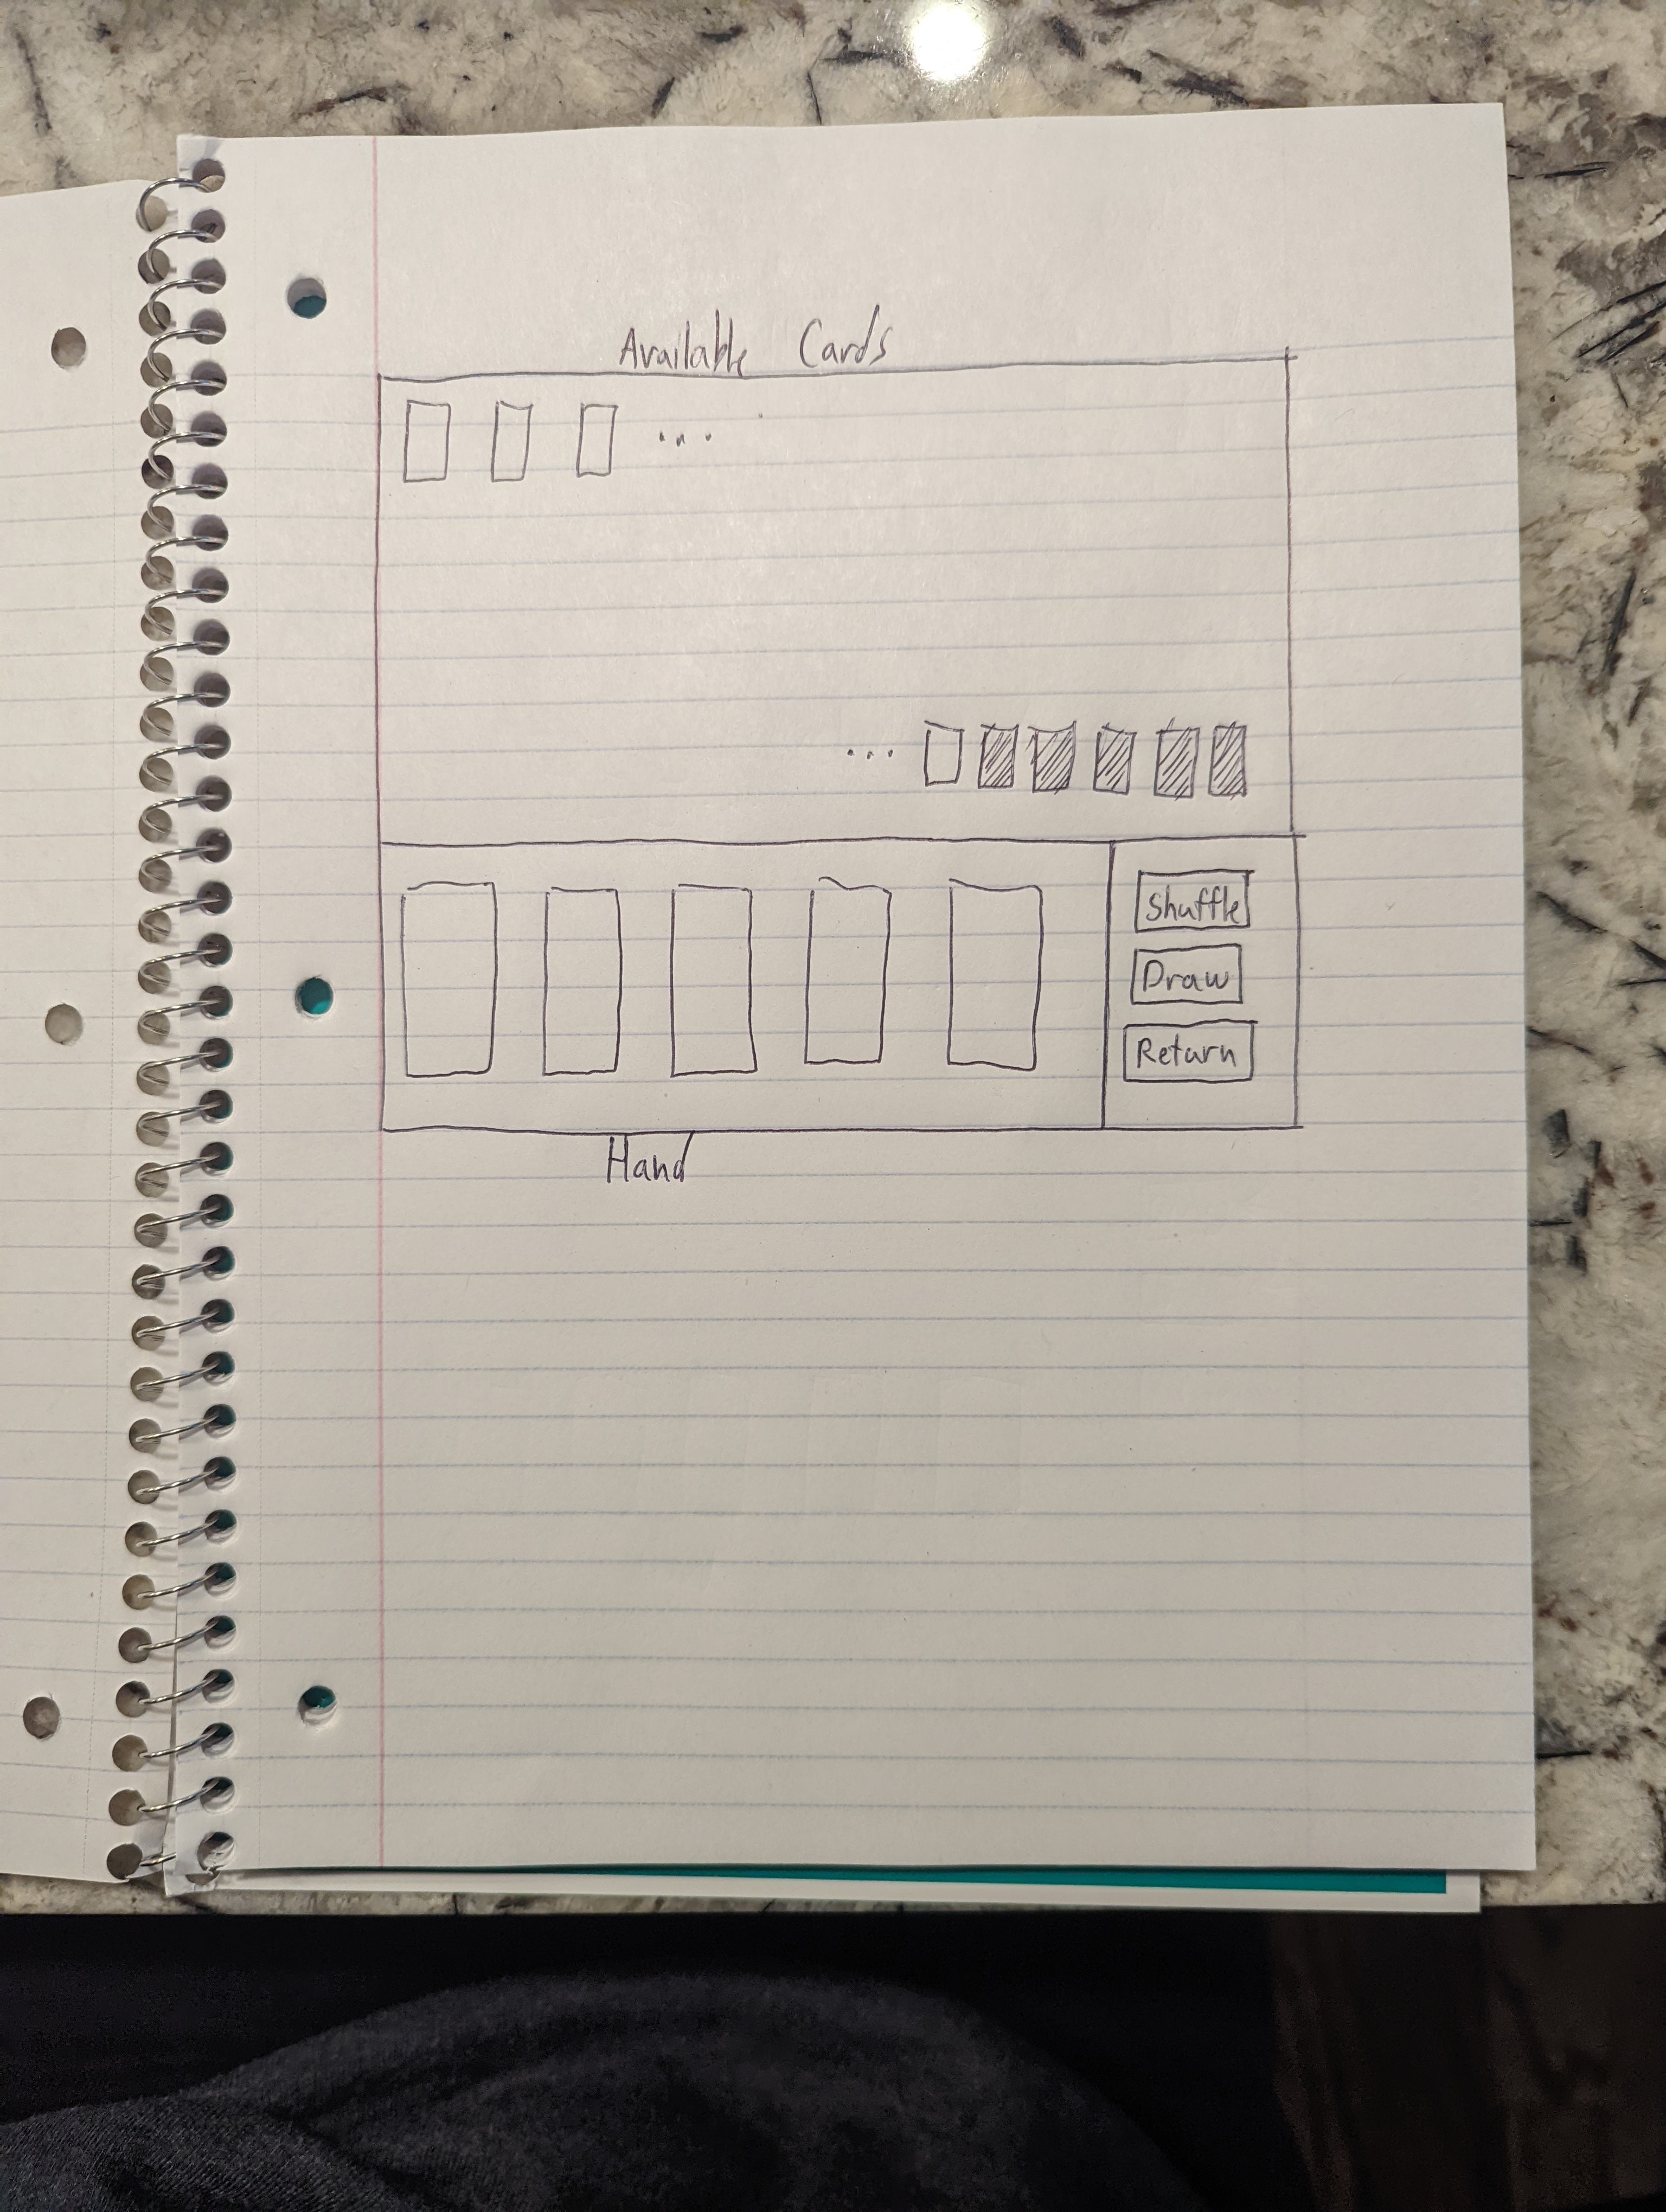 Available Cards
...
...
Shuffle
Draw
Return
Hand